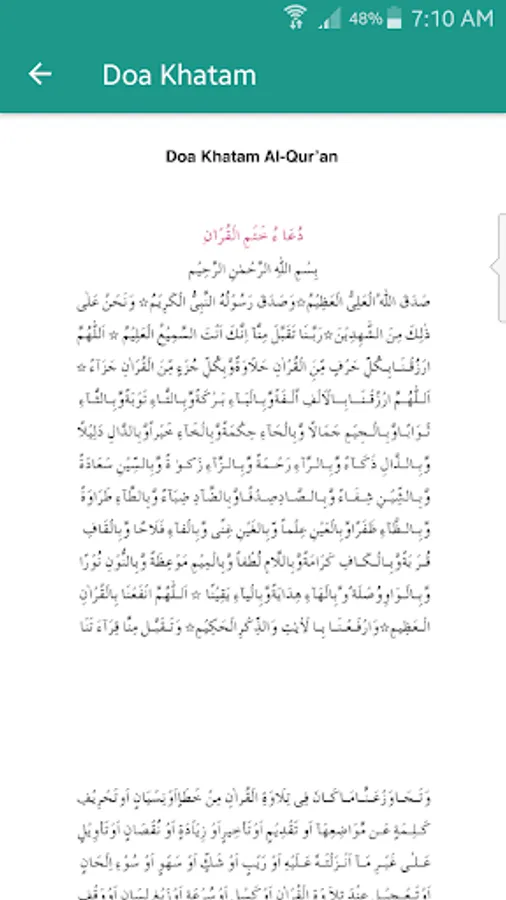 48% 7:10 AM
Doa Khatam
Doa Khatam Al-Qur'an
دُعَاءُ خَتْمِ الْقُرْاٰنِ
بِسْمِ اللهِ الرَّحْمٰنِ الرَّحِيْمِ
صَدَقَ اللهُ الْعَلِىُّ الْعَظِيْمُ☆وَصَدَقَ رَسُوْلُهُ النَّبِىُّ الْكَرِيْمُ☆ وَنَحْنُ عَلٰى
ذٰلِكَ مِنَ الشّٰهِدِيْنَ☆رَبَّنَا تَقَبَّلْ مِنَّا اِنَّكَ اَنْتَ السَّمِيْعُ الْعَلِيْمُ ☆ اَللّٰهُمَّ
ارْزُقْنَا بِكُلِّ حَرْفٍ مِّنَ الْقُرْاٰنِ حَلَاوَةً وَّبِكُلِّ جُزْءٍ مِّنَ الْقُرْاٰنِ جَزَآءً ☆
اَللّٰهُمَّ ارْزُقْنَا بِالْاَلِفِ اُلْفَةً وَّبِالْبَآءِ بَرَكَةً وَّبِالتَّاءِ تَوْبَةً وَّبِالثَّآءِ
ثَوَابًا وَّبِالْجِيْمِ جَمَالًا وَّبِالْحَآءِ حِكْمَةً وَّبِالْخَآءِ خَيْرًا وَّبِالدَّالِ دَلِيْلًا
وَّبِالذَّالِ ذَكَآءً وَّبِالرَّآءِ رَحْمَةً وَّبِالزَّآءِ زَكٰوةً وَّبِالسِّيْنِ سَعَادَةً
وَّبِالشِّيْنِ شِفَاءً وَّبِالصَّادِ صِدْقًا وَّبِالضَّادِ ضِيَآءً وَّبِالطَّآءِ طَرَاوَةً
وَّبِالظَّآءِ ظَفَرًا وَّبِالْعَيْنِ عِلْمًا وَّبِالْغَيْنِ غِنًى وَّبِالْفَآءِ فَلَاحًا وَّبِالْقَافِ
قُرْبَةً وَّبِالْكَافِ كَرَامَةً وَّبِاللَّامِ لُطْفًا وَّبِالْمِيْمِ مَوْعِظَةً وَّبِالنُّوْنِ نُوْرًا
وَّبِالْوَاوِ وُصْلَةً وَّبِالْهَآءِ هِدَايَةً وَّبِالْيَآءِ يَقِيْنًا ☆ اَللّٰهُمَّ انْفَعْنَا بِالْقُرْاٰنِ
الْعَظِيْمِ☆وَارْفَعْنَا بِالْاٰيٰتِ وَالذِّكْرِ الْحَكِيْمِ☆ وَتَقَبَّلْ مِنَّا قِرَآءَتَنَا
وَتَجَاوَزْ عَنَّا مَا كَانَ فِى تِلَاوَةِ الْقُرْاٰنِ مِنْ خَطَاٍ اَوْ نِسْيَانٍ اَوْ تَحْرِيْفِ
كَلِمَةٍ عَنْ مَّوَاضِعِهَا اَوْ تَقْدِيْمٍ اَوْ تَأْخِيْرٍ اَوْ زِيَادَةٍ اَوْ نُقْصَانٍ اَوْ تَأْوِيْلٍ
عَلٰى غَيْرِ مَآ اَنْزَلْتَهُ عَلَيْهِ اَوْ رَيْبٍ اَوْ شَكٍّ اَوْ سَهْوٍ اَوْ سُوْءِ اِلْحَانٍ
اَوْ تَعْجِيْلٍ عِنْدَ تِلَاوَةِ الْقُرْاٰنِ اَوْ كَسَلٍ اَوْ سُرْعَةٍ اَوْ زَيْغِ لِسَانٍ اَوْ وَقْفٍ